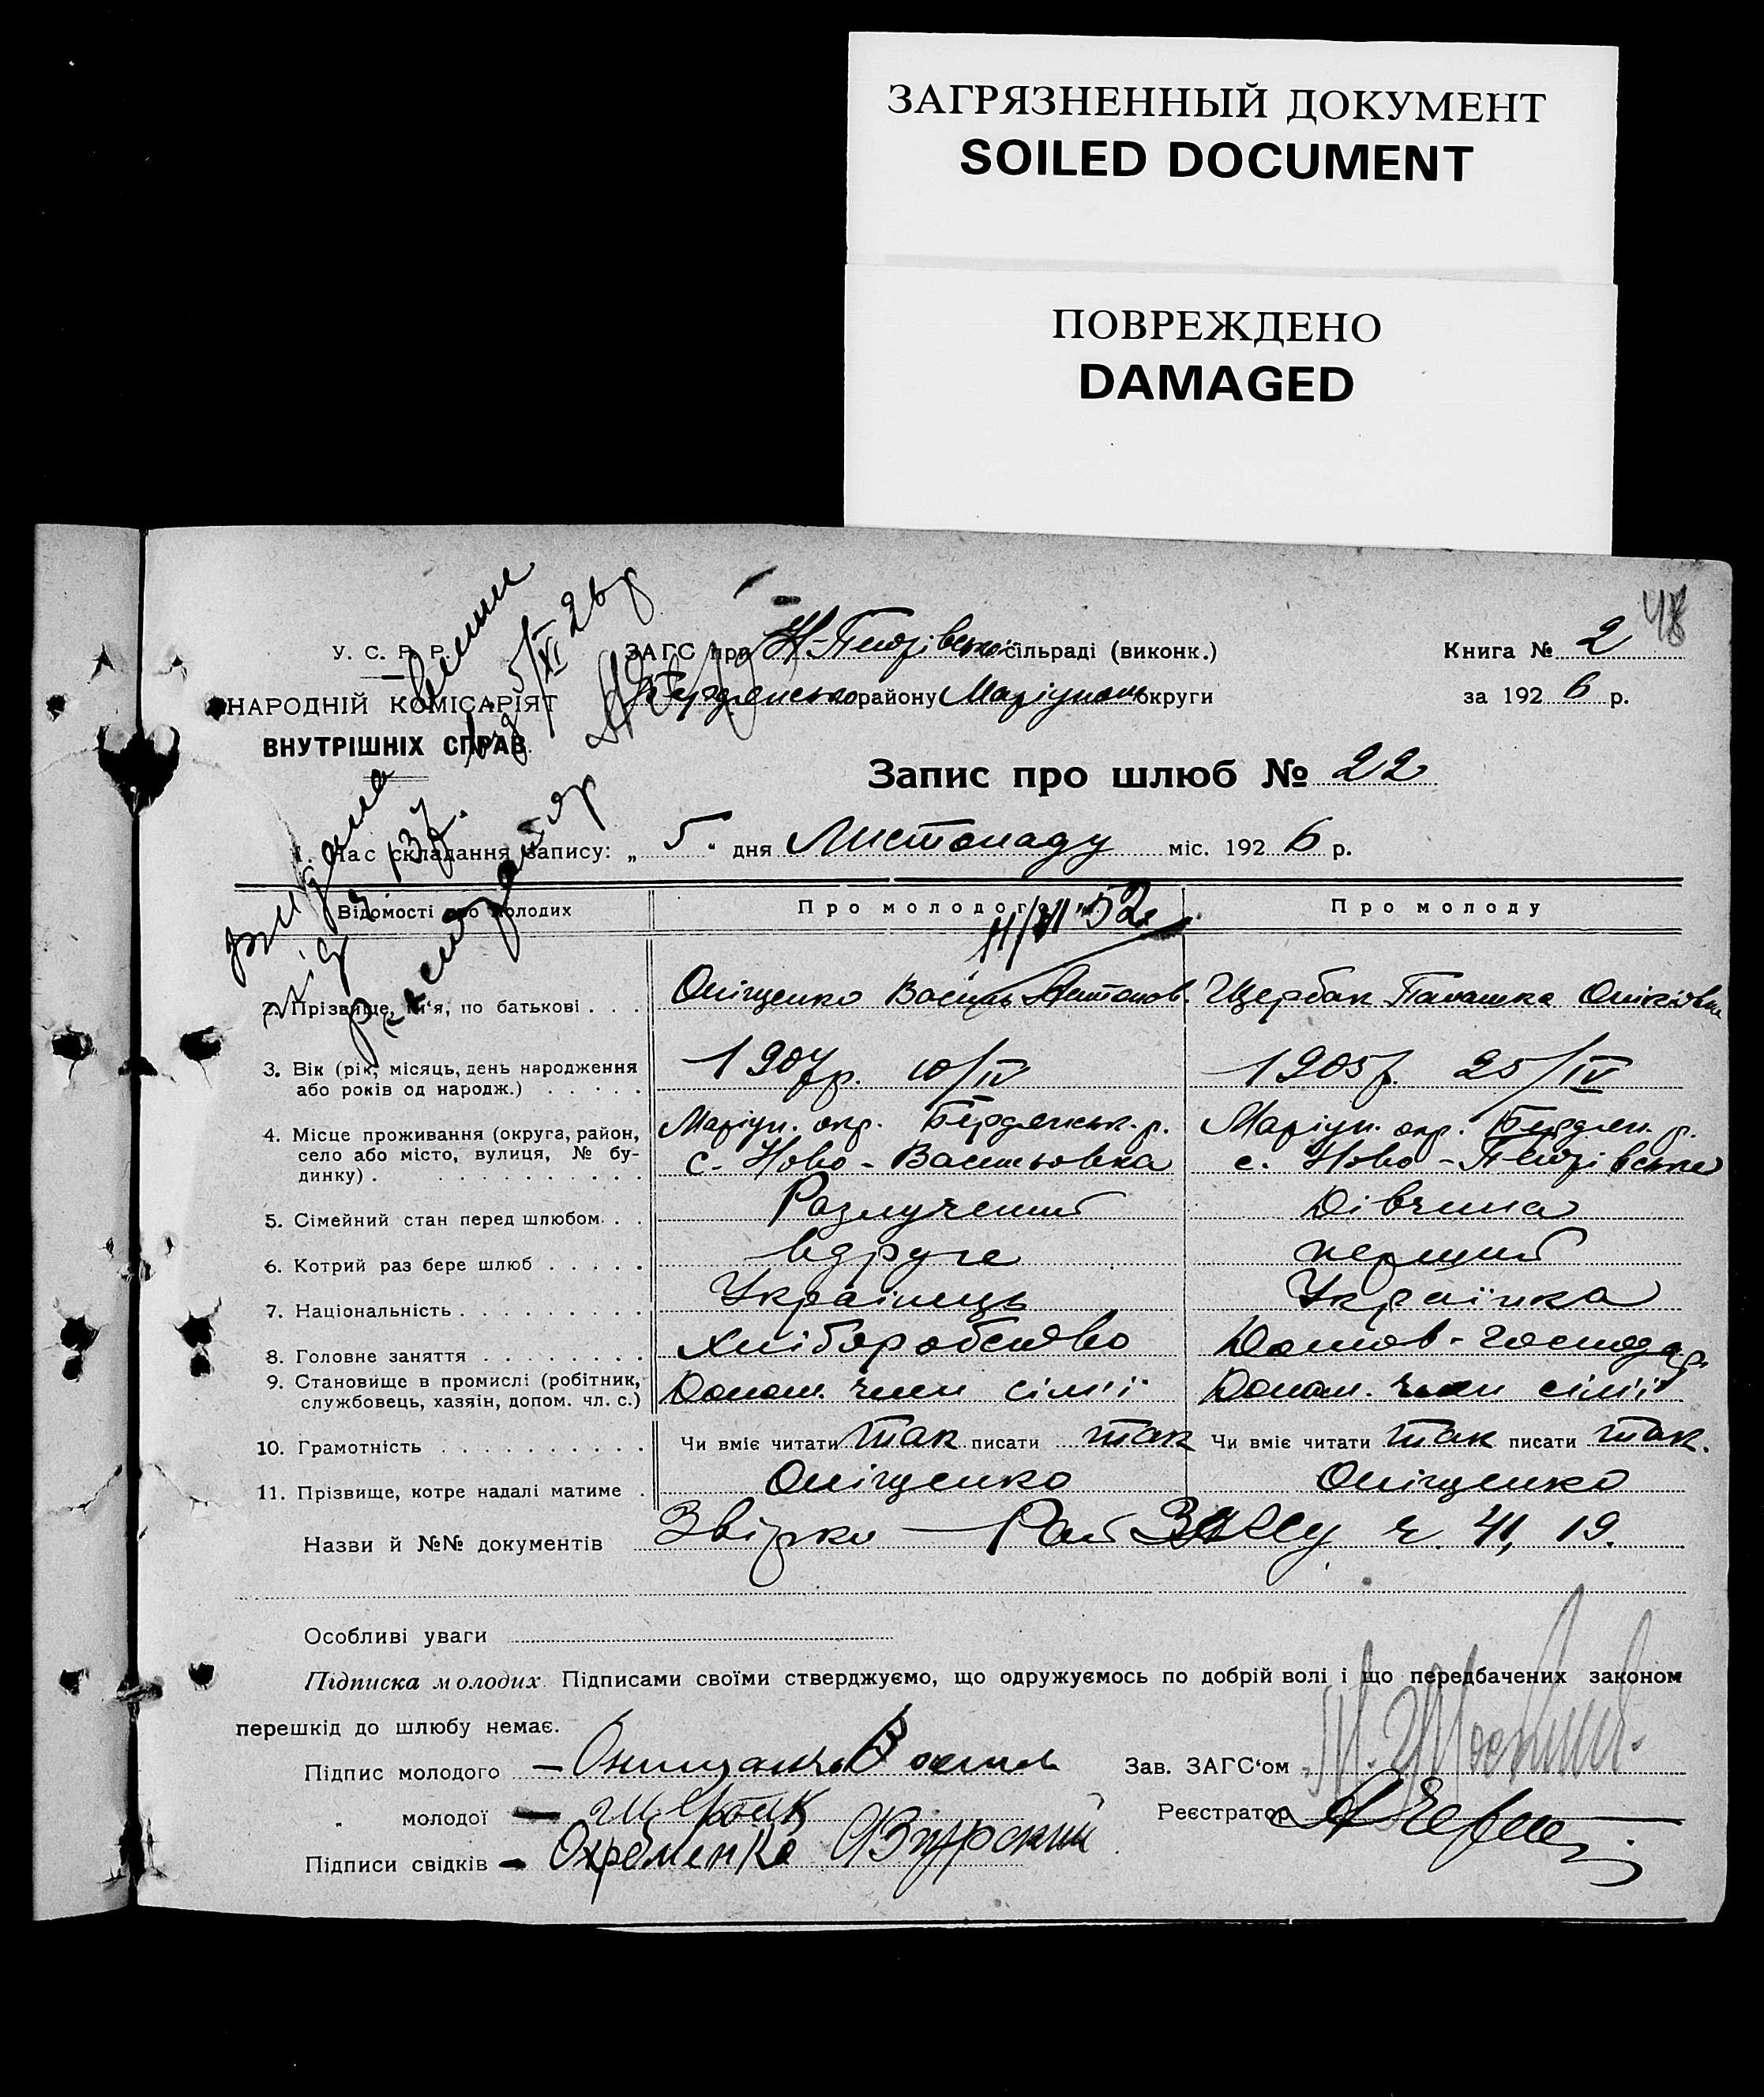 ЗАГРЯЗНЕННЫЙ ДОКУМЕНТ
SOILED DOCUMENT
ПОВРЕЖДЕНО
DAMAGED
48
У. С. Р. Р.
НАРОДНІЙ КОМІСАРІЯТ
ВНУТРІШНІХ СПРАВ
ЗАГС при сільраді (виконк.)
району Маріупол округи
Книга № 2
за 192 6 р.
Запис про шлюб № 22
1. Час складання запису: „ 5 " дня Листопаду міс. 192 6 р.
Відомості про молодих Про молодого Про молоду
2. Прізвище, ім‘я, по батькові . . . Оніщенко Василь Антонов. Щербак Палашка
3. Вік (рік, місяць, день народження 1907р. 10/IV 1905р. 25/IV
або років од народж.) . . . . .
4. Місце проживання (округа, район, Маріуп. окр. Бердянськ. р. Маріуп. окр. Бердян. р.
село або місто, вулиця, № бу- с. Ново-Васильовка с. Ново-
динку) . . . . . . . . . .
5. Сімейний стан перед шлюбом . . Разлучений Дівчина
6. Котрий раз бере шлюб . . . . . вдруге перший
7. Національність . . . . . . . . . Українець Українка
8. Головне заняття . . . . . . . . Хліборобство Домов-господар.
9. Становище в промислі (робітник, Допом. член сім'ї Допом. член сім'ї
службовець, хазяїн, допом. чл. с.)
10. Грамотність . . . . . . . . . . Чи вміє читати так писати так Чи вміє читати так писати так.
11. Прізвище, котре надалі матиме . Оніщенко Оніщенко
Назви й №№ документів ч. 41, 19.
Особливі уваги
Підписка молодих. Підписами своїми стверджуємо, що одружуємось по добрій волі і що передбачених законом
перешкід до шлюбу немає.
Підпис молодого Зав. ЗАГС‘ом
„ молодої Реєстратор
Підписи свідків Охременко